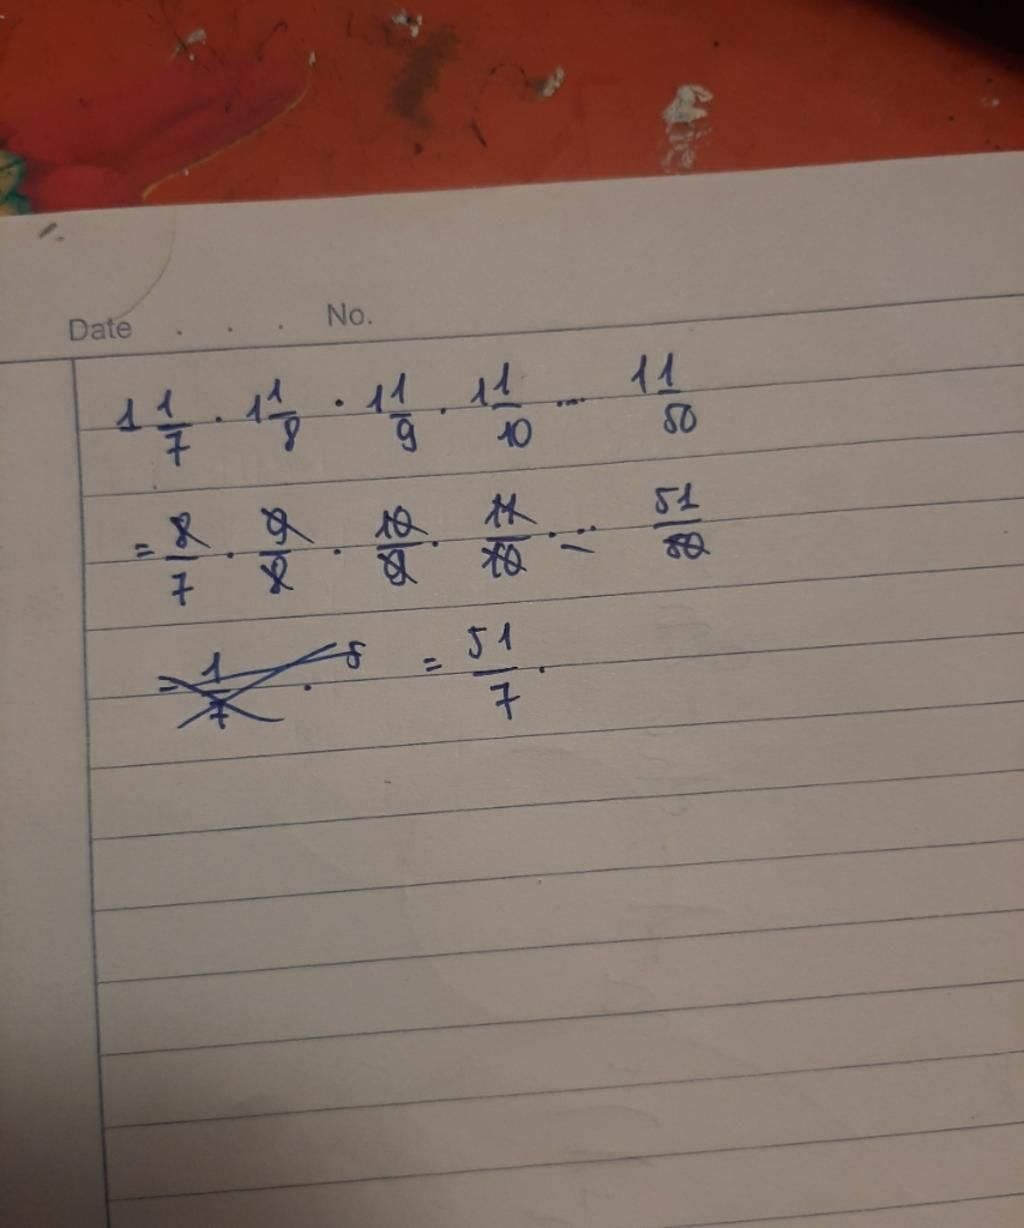 Date . . . No.
1 1/7 . 1 1/8 . 1 1/9 . 1 1/10 ... 1 1/50
= 8/7 . 9/8 . 10/9 . 11/10 . ... 51/50
= 1/7 . 5 = 51/7 .